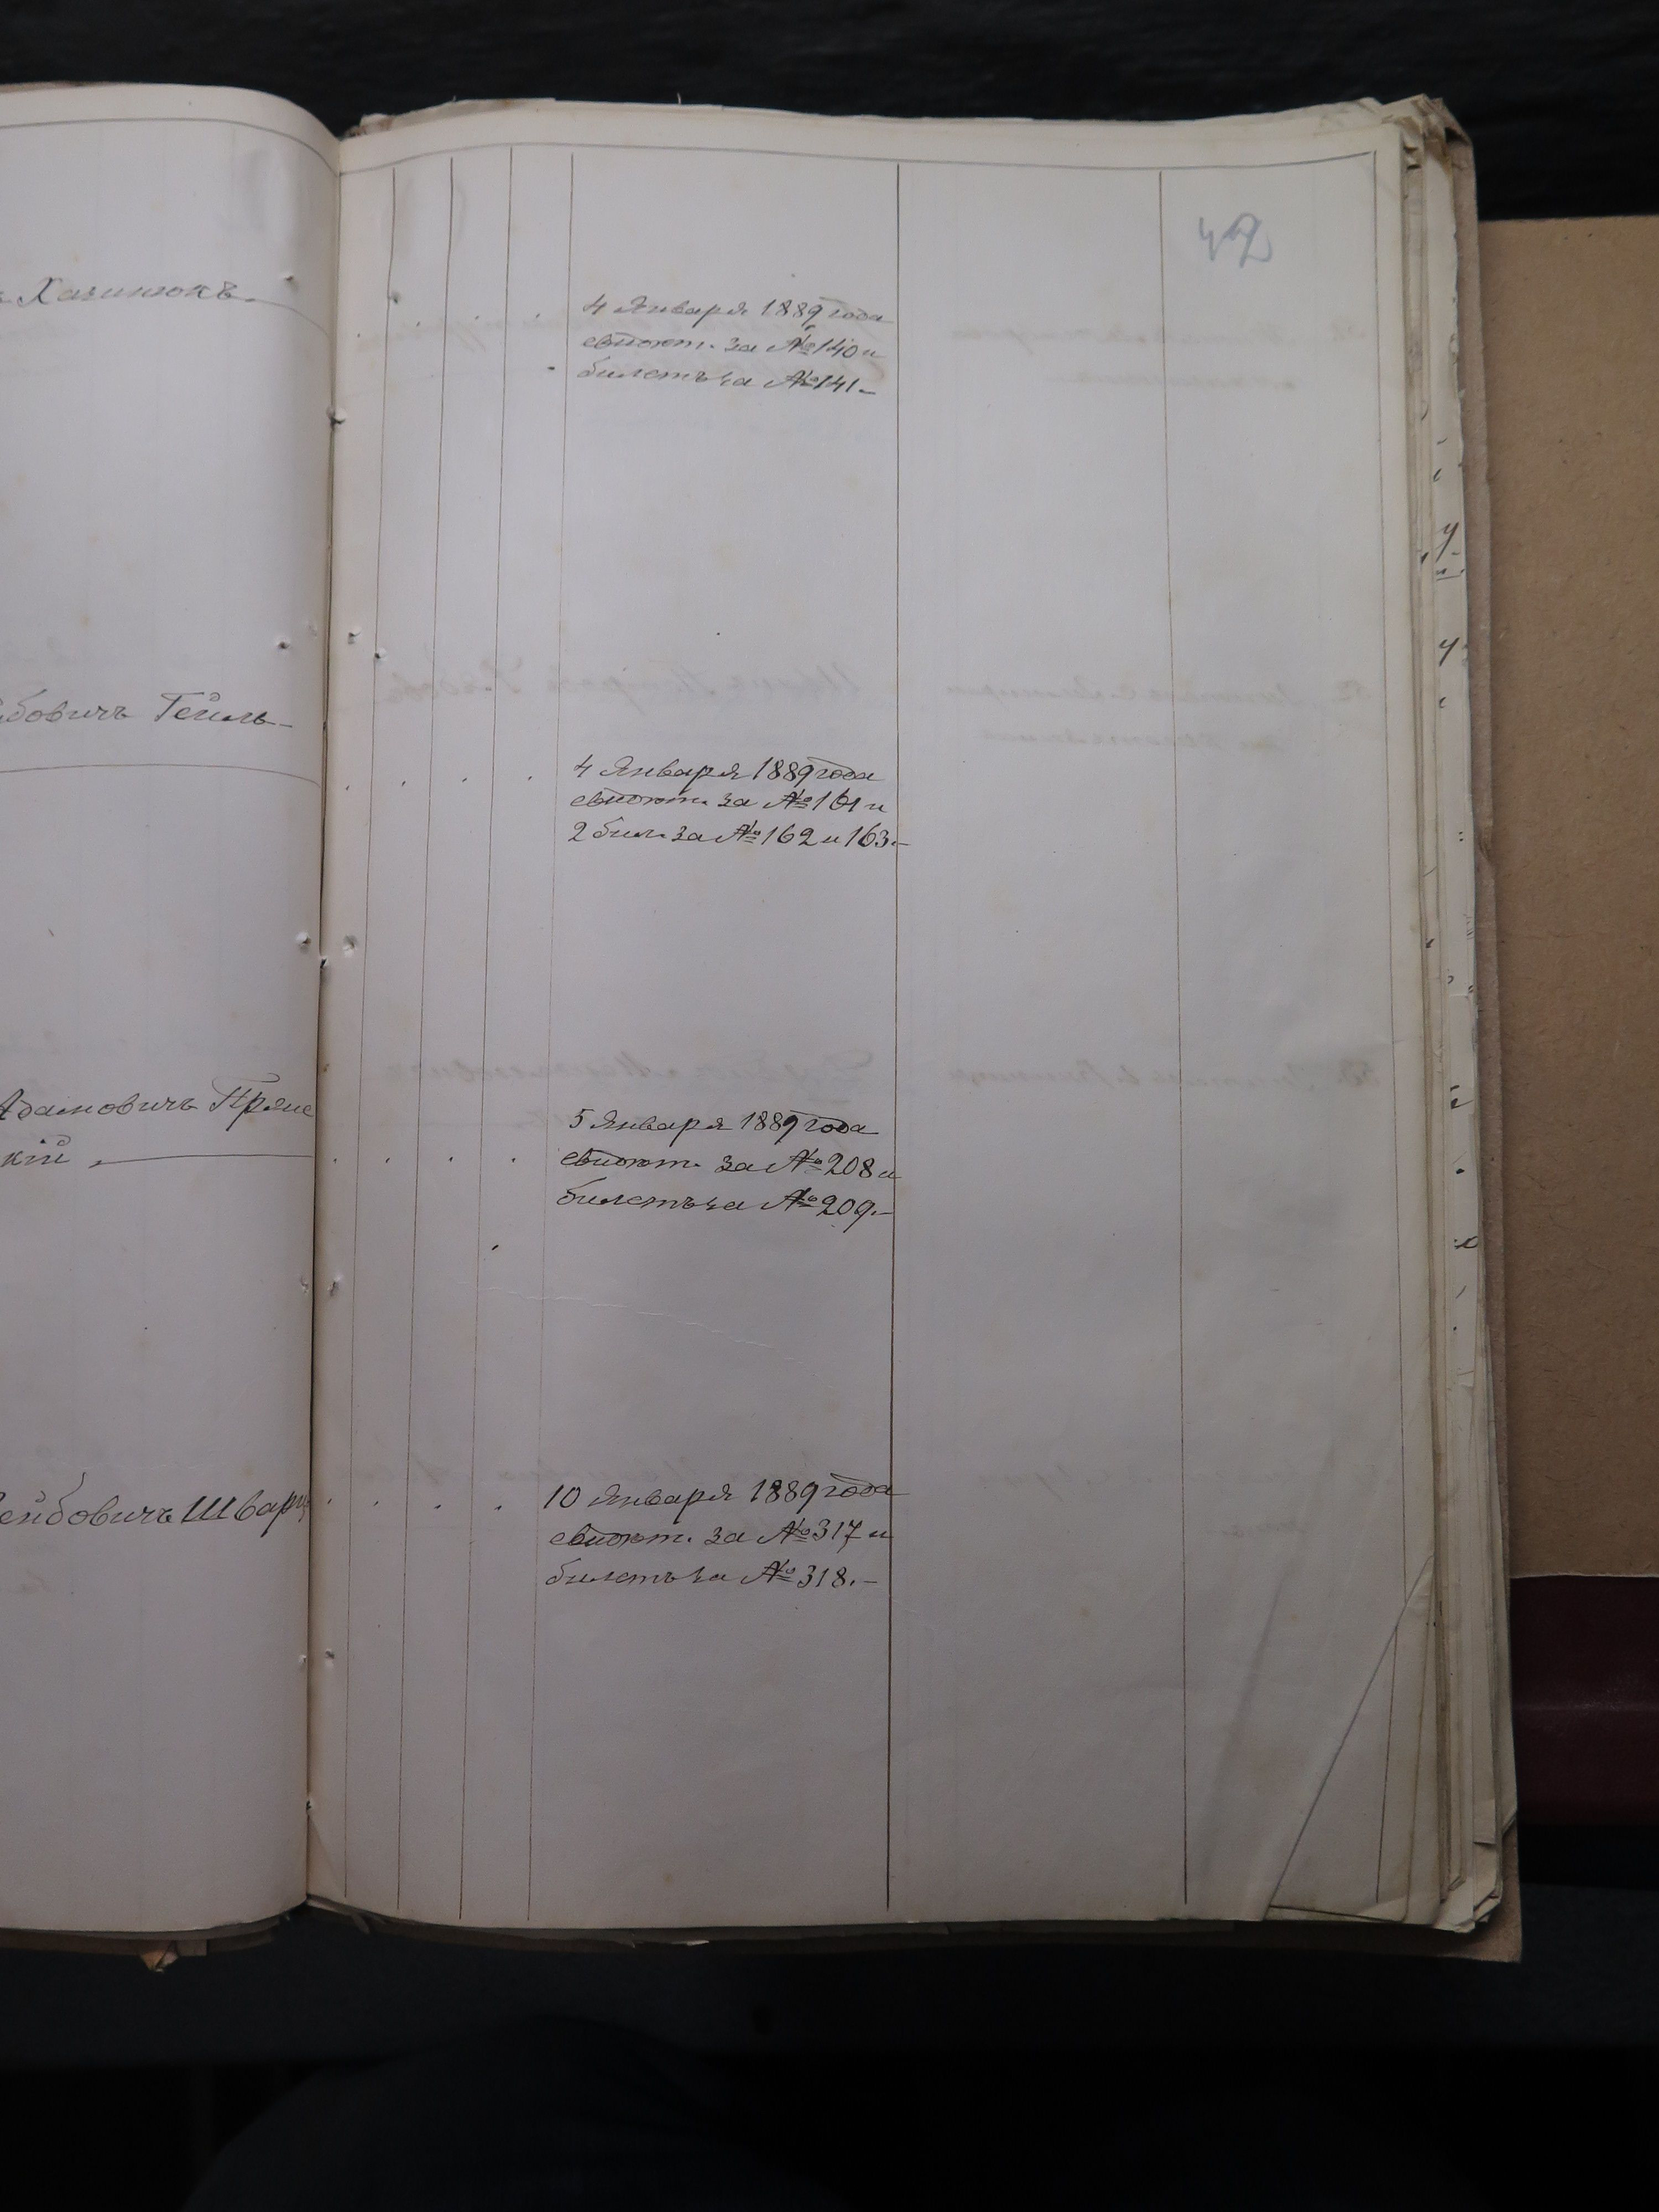 42
Хагинюкъ
4 Января 1889 года
свидѣт. за № 140 и
билетъ за № 141.-
бовичъ Гейль-
4 Января 1889 года
свидѣт. за № 161 и
2 бил. за № 162 и 163.-
Адамовичъ Прянс
кій
5 Января 1889 года
свидѣт. за № 208 и
билетъ за № 209.-
ейбовичъ Шварц
10 Января 1889 года
свидѣт. за № 317 и
билетъ за № 318.-